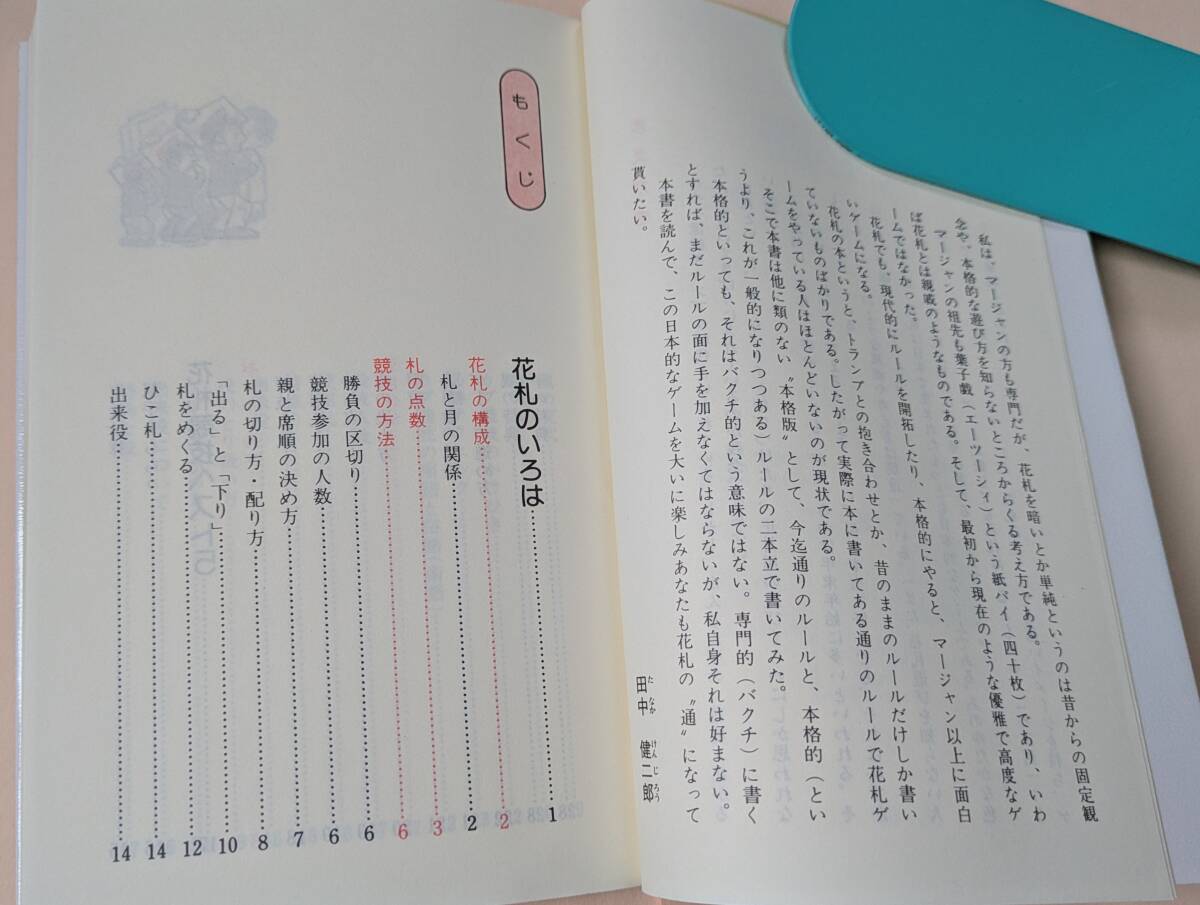 私は、マージャンの方も専門だが、花札を暗いとか単純というのは昔からの固定観
念や、本格的な遊び方を知らないところからくる考え方である。
マージャンの祖先も葉子戯（エーツーシィ）という紙パイ（四十枚）であり、いわ
ば花札とは親戚のようなものである。そして、最初から現在のような優雅で高度なゲ
ームではなかった。
花札でも、現代的にルールを開拓したり、本格的にやると、マージャン以上に面白
いゲームになる。
花札の本というと、トランプとの抱き合わせとか、昔のままのルールだけしか書い
ていないものばかりである。したがって実際に本に書いてある通りのルールで花札ゲ
ームをやっている人はほとんどいないのが現状である。
そこで本書は他に類のない〝本格版〟として、今迄通りのルールと、本格的（とい
うより、これが一般的になりつつある）ルールの二本立で書いてみた。
本格的といっても、それはバクチ的という意味ではない。専門的（バクチ）に書く
とすれば、まだルールの面に手を加えなくてはならないが、私自身それは好まない。
本書を読んで、この日本的なゲームを大いに楽しみあなたも花札の〝通〟になって
貰いたい。
田中 健二郎
たなか けんじろう
もくじ
花札のいろは……1
花札の構成……2
札と月の関係……2
札の点数……3
競技の方法……6
勝負の区切り……6
競技参加の人数……6
親と席順の決め方……7
札の切り方・配り方……8
「出る」と「下り」……10
札をめくる……12
ひこ札……14
出来役……14